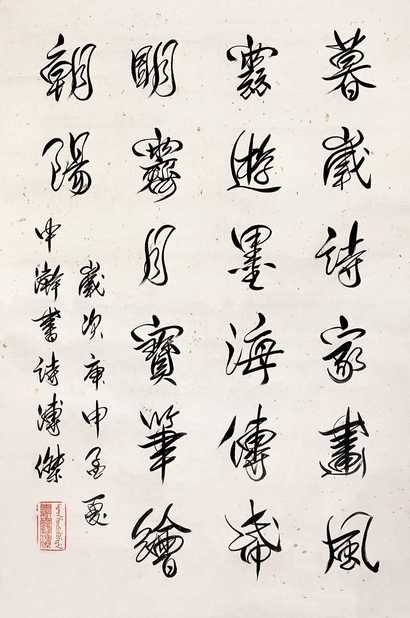 暮歲詩家畫風
遊墨海傳
明月寶筆繪
朝陽
歲次庚申夏
中瀚書詩溥傑